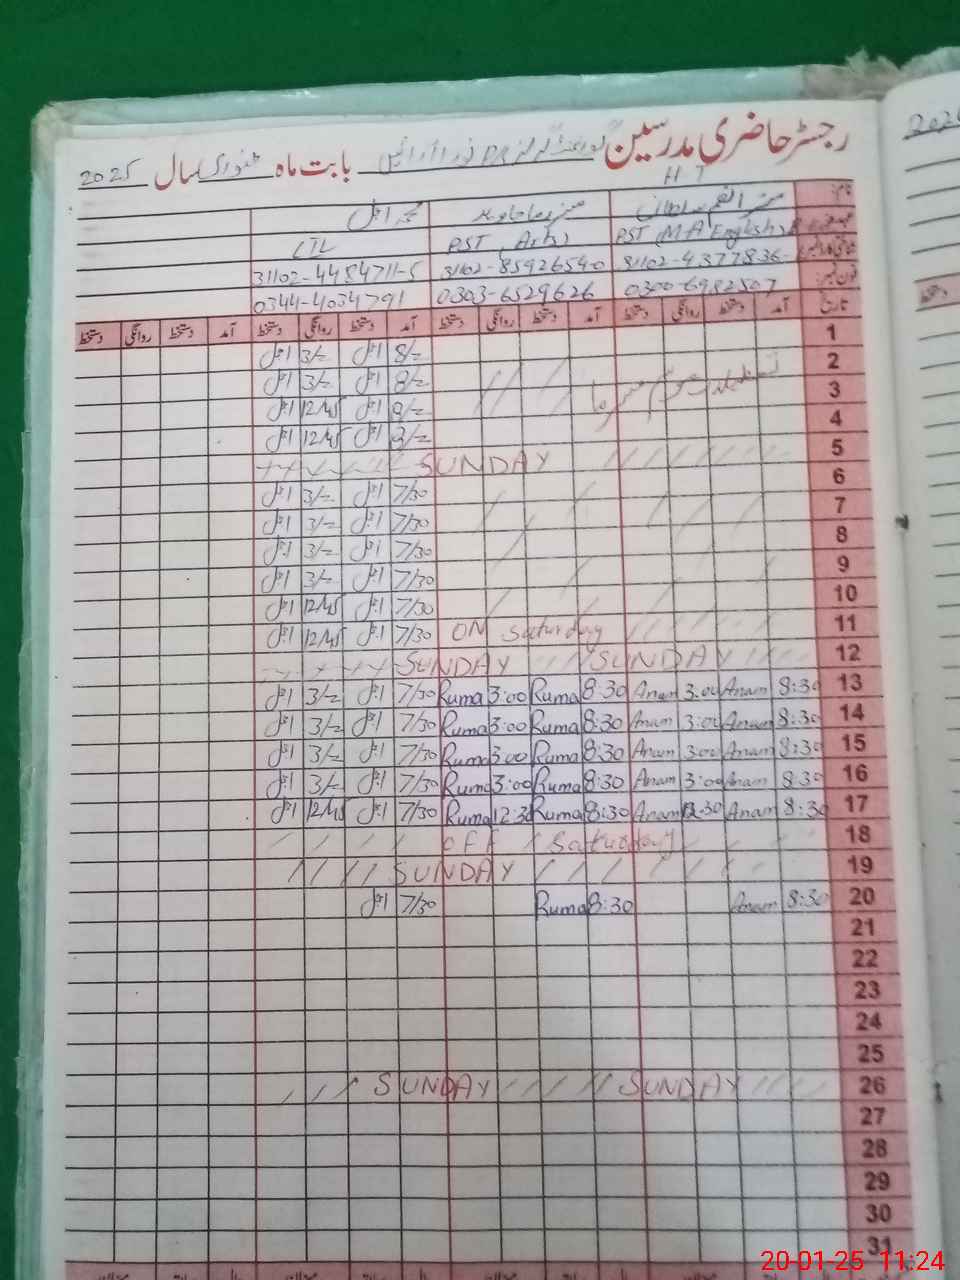 رجسٹر حاضری مدرسین بابت ماہ جنوری سال 2025
H T
نام: مسز انعم سلطان مسز رما جاوید محمد اجمل
PST (MA English) PST (Arts)
31102-4377836- 31102-8592654-0 31102-4484711-5
فون نمبر: 0300-6982507 0303-6529626 0344-4034791
تاریخ آمد دستخط روانگی دستخط آمد دستخط روانگی دستخط آمد دستخط روانگی دستخط آمد دستخط روانگی دستخط
1 8/- اجمل 3/- اجمل
2 8/- اجمل 3/- اجمل
3 تعطیلات موسم سرما اجمل 12/45 اجمل
4 اجمل 12/45 اجمل
5 SUNDAY
6 7/30 اجمل 3/- اجمل
7 7/30 اجمل 3/- اجمل
8 7/30 اجمل 3/- اجمل
9 7/30 اجمل 3/- اجمل
10 7/30 اجمل 12/45 اجمل
11 ON Saturday 7/30 اجمل 12/45 اجمل
12 SUNDAY SUNDAY
13 8:30 Anam 3:00 Anam 8:30 Ruma 3:00 Ruma 7/30 اجمل 3/- اجمل
14 8:30 Anam 3:00 Anam 8:30 Ruma 3:00 Ruma 7/30 اجمل 3/- اجمل
15 8:30 Anam 3:00 Anam 8:30 Ruma 3:00 Ruma 7/30 اجمل 3/- اجمل
16 8:30 Anam 3:00 Anam 8:30 Ruma 3:00 Ruma 7/30 اجمل 3/- اجمل
17 8:30 Anam 12:30 Anam 8:30 Ruma 12:30 Ruma 7/30 اجمل 12/45 اجمل
18 OFF Saturday
19 SUNDAY
20 8:30 Anam 8:30 Ruma 7/30 اجمل
21
22
23
24
25
26 SUNDAY SUNDAY
27
28
29
30
31
20-01-25 11:24